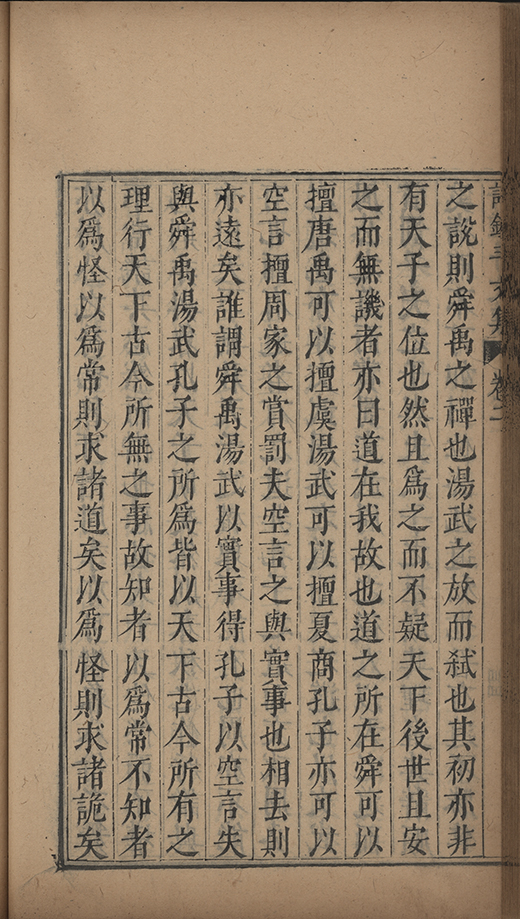 文集 卷二
之說則舜禹之禪也湯武之放而弑也其初亦非
有天子之位也然且爲之而不疑天下後世且安
之而無譏者亦曰道在我故也道之所在舜可以
擅唐禹可以擅虞湯武可以擅夏商孔子亦可以
空言擅周家之賞罰夫空言之與實事也相去則
亦遠矣誰謂舜禹湯武以實事得孔子以空言失
與舜禹湯武孔子之所爲皆以天下古今所有之
理行天下古今所無之事故知者以爲常不知者
以爲怪以爲常則求諸道矣以爲怪則求諸詭矣